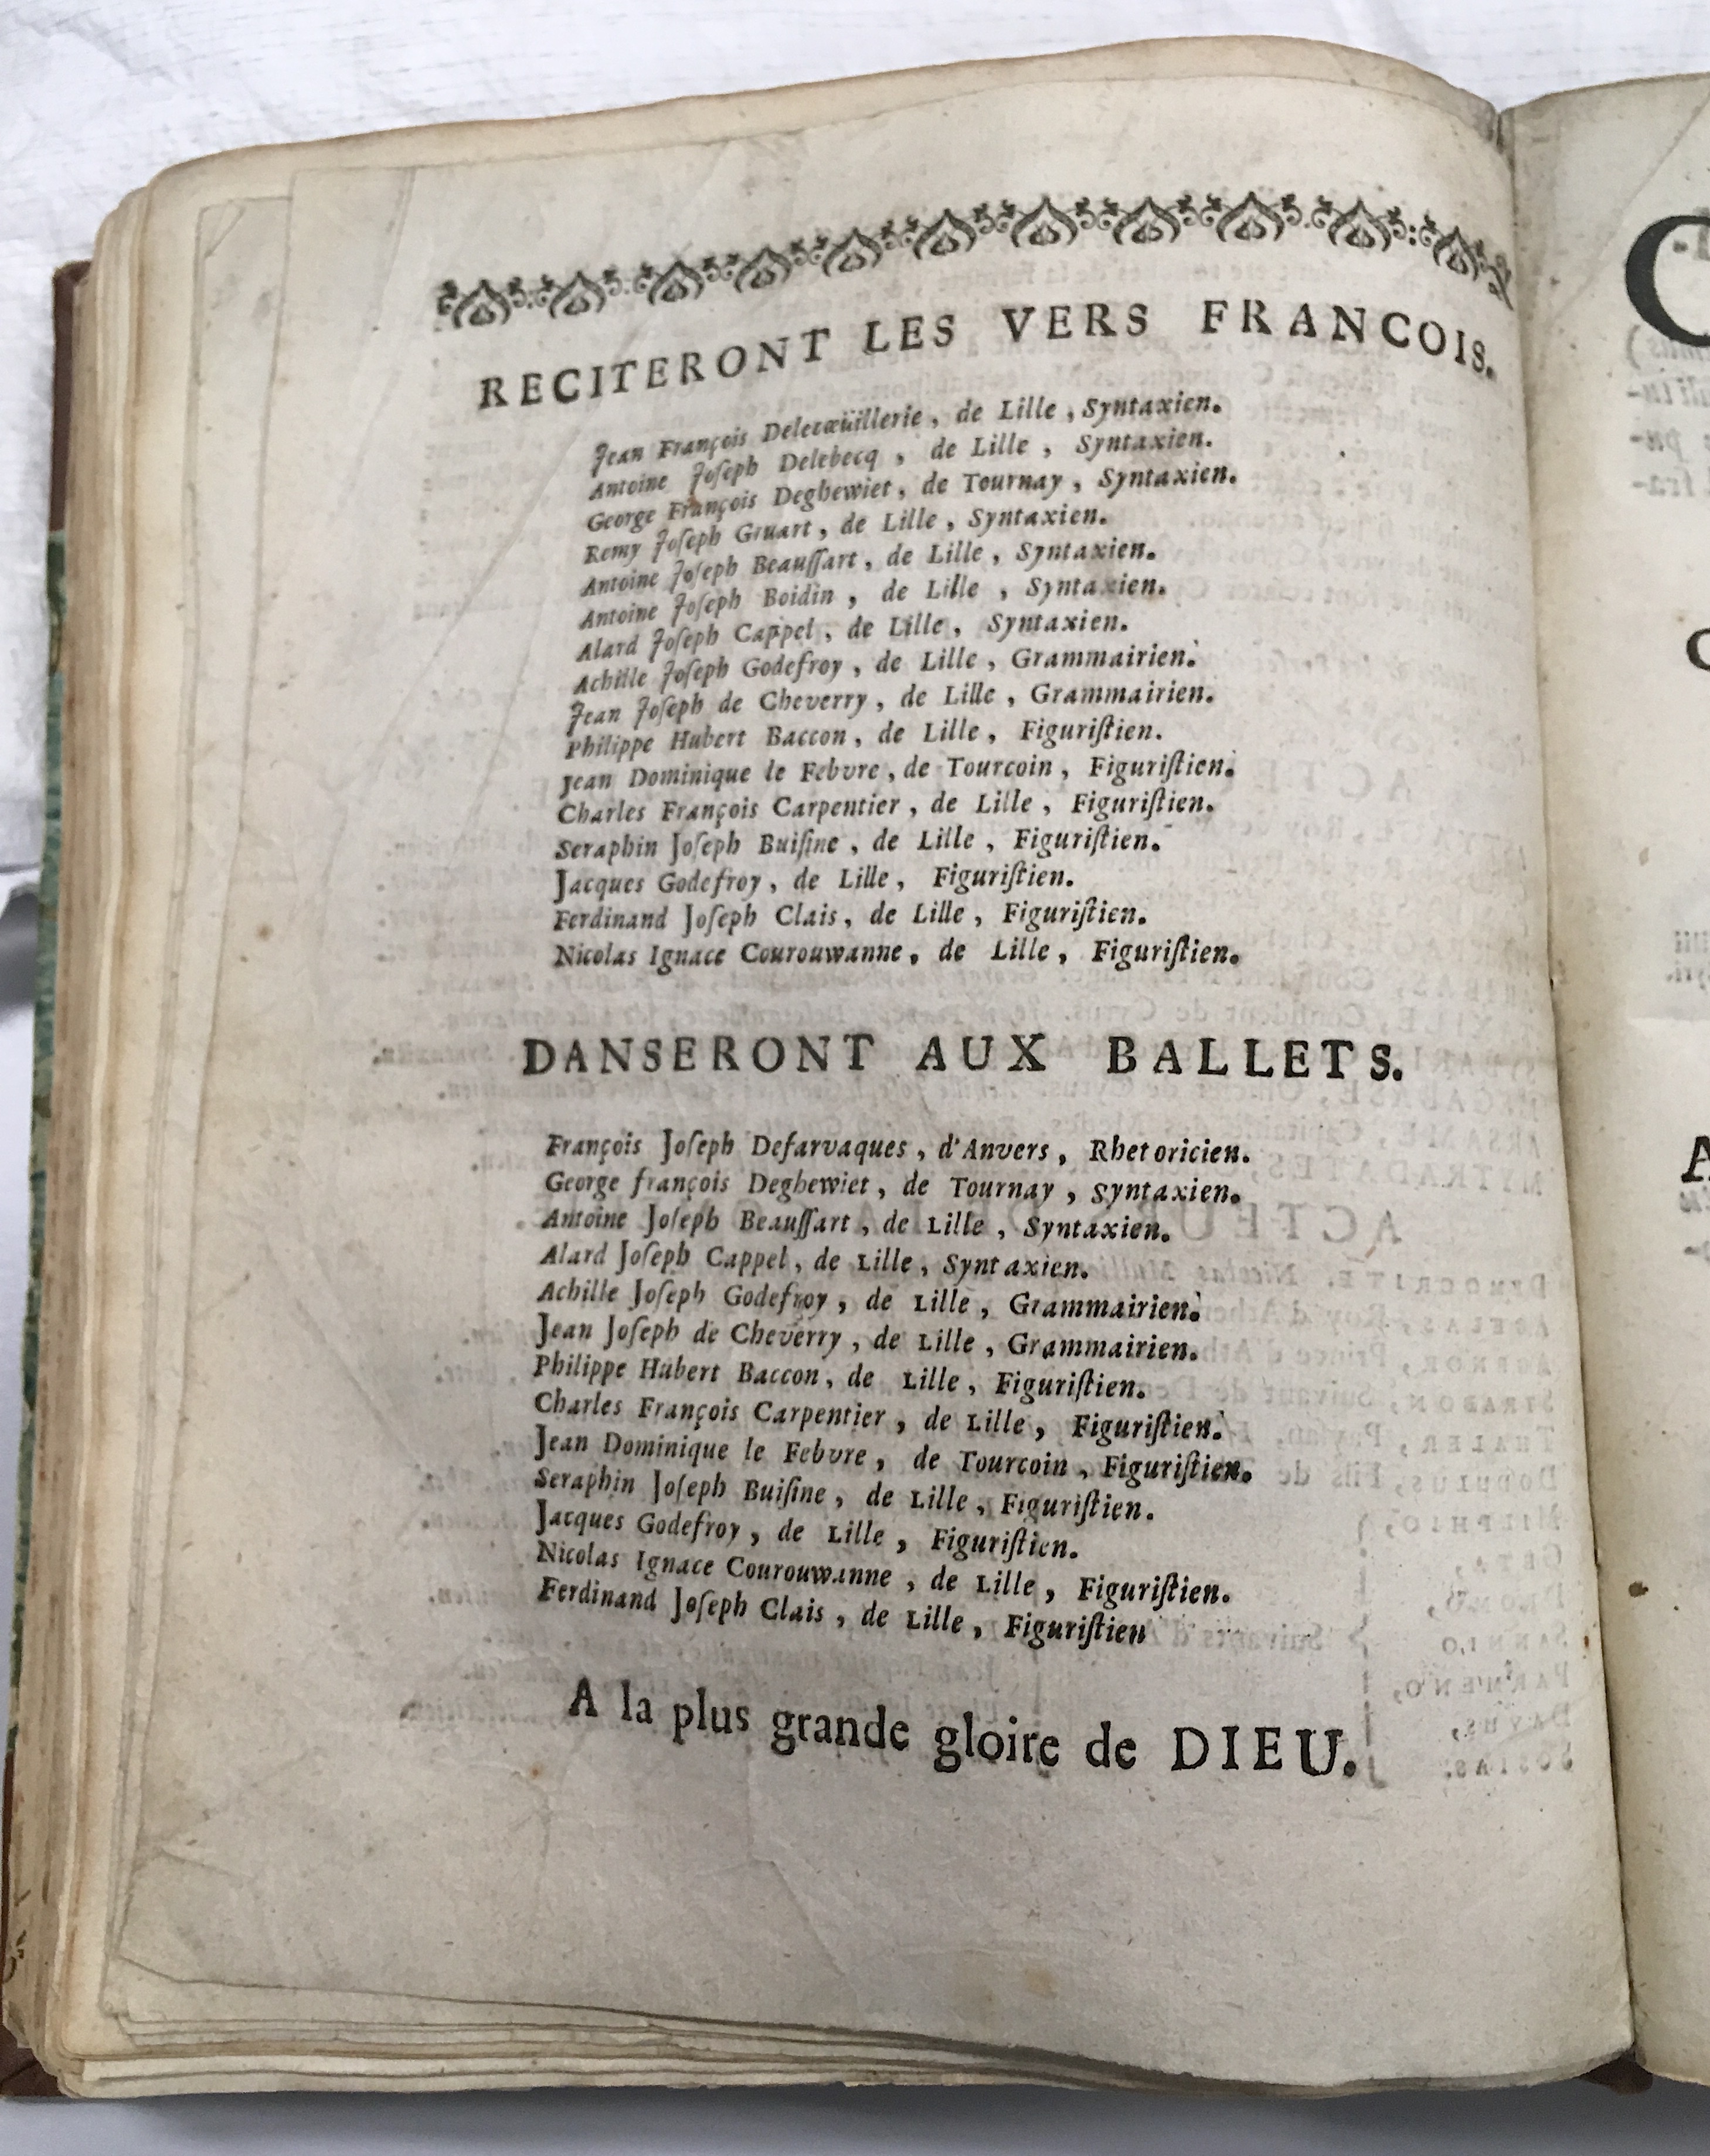 RECITERONT LES VERS FRANCOIS.
Jean François Delecœüillerie, de Lille, Syntaxien.
Antoine Joſeph Delebecq, de Lille, Syntaxien.
George François Deghewiet, de Tournay, Syntaxien.
Remy Joſeph Gruart, de Lille, Syntaxien.
Antoine Joſeph Beauſſart, de Lille, Syntaxien.
Antoine Joſeph Boidin, de Lille, Syntaxien.
Alard Joſeph Cappel, de Lille, Syntaxien.
Achille Joſeph Godefroy, de Lille, Grammairien.
Jean Joſeph de Cheverry, de Lille, Grammairien.
Philippe Hubert Baccon, de Lille, Figuriſtien.
Jean Dominique le Febvre, de Tourcoin, Figuriſtien.
Charles François Carpentier, de Lille, Figuriſtien.
Seraphin Joſeph Buiſine, de Lille, Figuriſtien.
Jacques Godefroy, de Lille, Figuriſtien.
Ferdinand Joſeph Clais, de Lille, Figuriſtien.
Nicolas Ignace Courouwanne, de Lille, Figuriſtien.
DANSERONT AUX BALLETS.
François Joſeph Defarvaques, d'Anvers, Rhetoricien.
George françois Deghewiet, de Tournay, Syntaxien.
Antoine Joſeph Beauſſart, de Lille, Syntaxien.
Alard Joſeph Cappel, de Lille, Syntaxien.
Achille Joſeph Godefroy, de Lille, Grammairien.
Jean Joſeph de Cheverry, de Lille, Grammairien.
Philippe Hubert Baccon, de Lille, Figuriſtien.
Charles François Carpentier, de Lille, Figuriſtien.
Jean Dominique le Febvre, de Tourcoin, Figuriſtien.
Seraphin Joſeph Buiſine, de Lille, Figuriſtien.
Jacques Godefroy, de Lille, Figuriſtien.
Nicolas Ignace Courouwanne, de Lille, Figuriſtien.
Ferdinand Joſeph Clais, de Lille, Figuriſtien
A la plus grande gloire de DIEU.